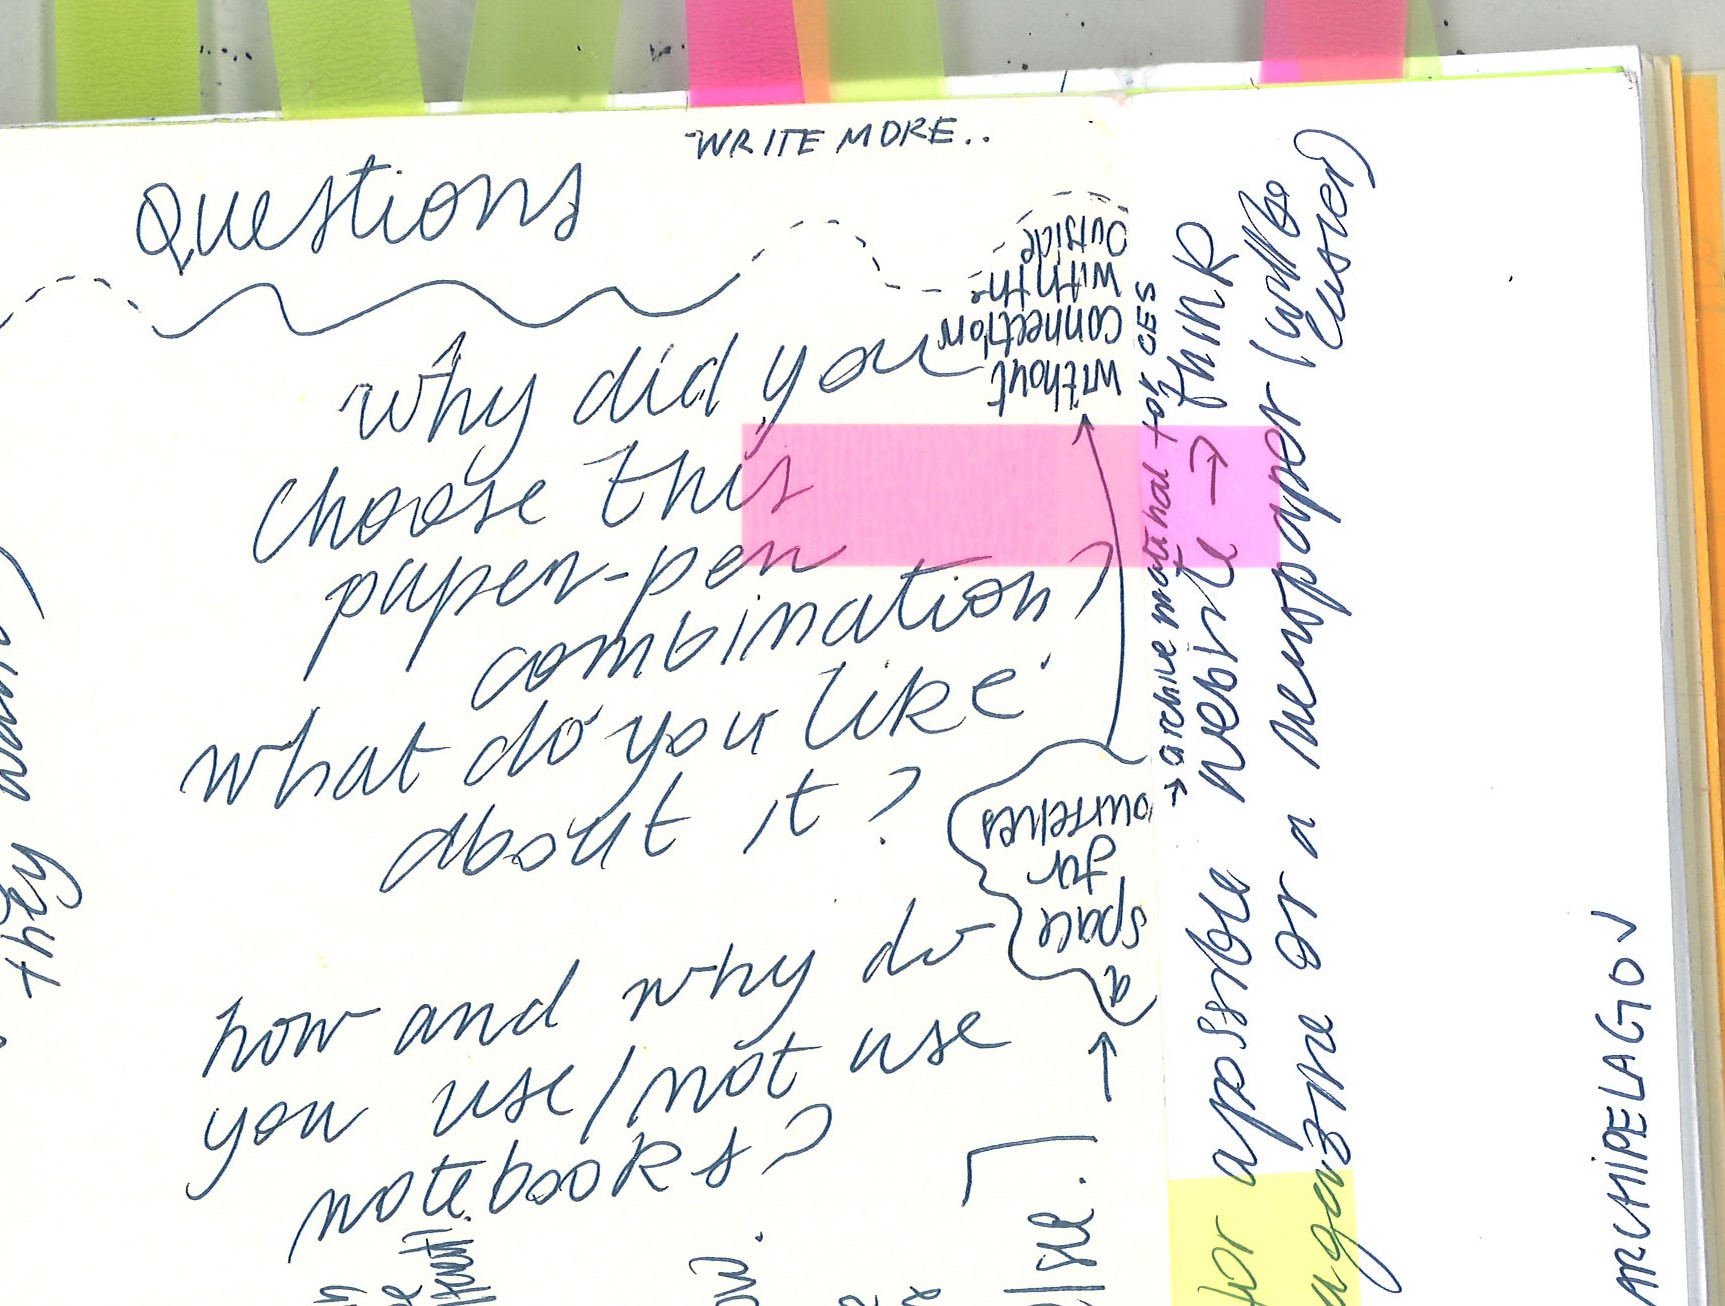 WRITE MORE..
Questions
why did you
choose this
paper-pen
combination?
what do you like
about it?
how and why do
you use/not use
notebooks?
a
space
for
ourselves
without
connection
with th-
outside
→ archive material for CES
for a possible website → think
or a newspaper (will be
easier)
they
ARCHIPELAGO